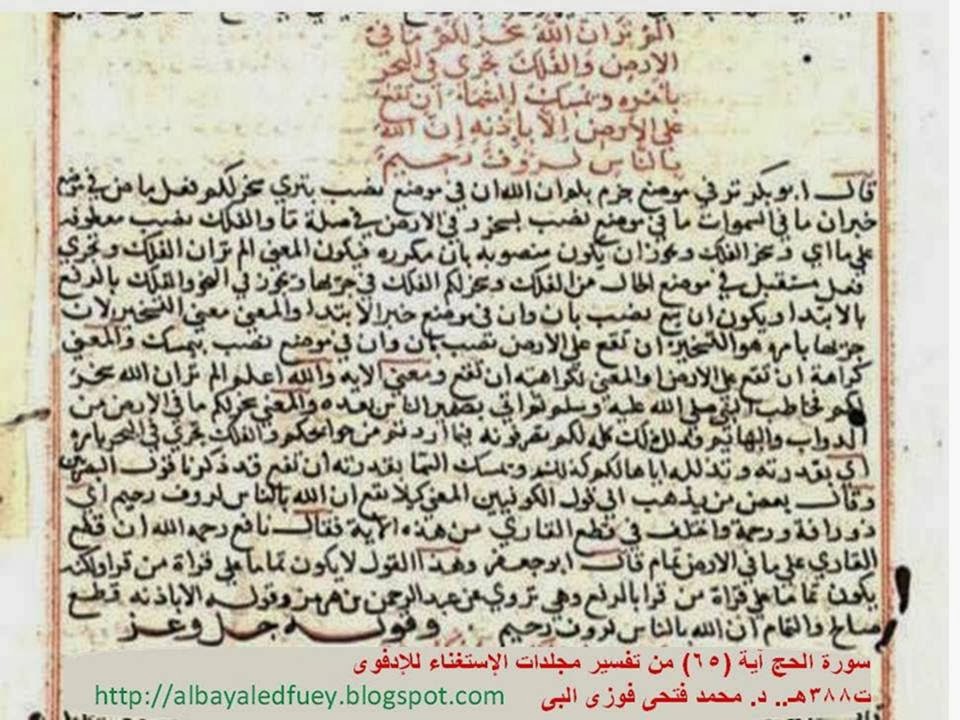 الم تر ان الله سخر لكم ما في
الارض والفلك تجري في البحر
بامره ويمسك السماء ان تقع
على الارض الا باذنه ان الله
بالناس لروف رحيم
قال ابو بكر تر في موضع جزم بلم وان الله ان في موضع نصب بتري سخر لكم فعل ماض في موضع
خبر ان ما في السموات ما في موضع نصب بسخر و في الارض في صلة ما والفلك نصب معطوفه
على ما اي وسخر الفلك ويجوز ان يكون منصوبه بان مكرره فيكون المعنى الم تر ان الفلك وتجري
فعل مستقبل في موضع الحال من الفلك وسخر لكم الفلك في جريها ويجوز في النحو والفلك بالرفع
بالابتدا ويكون ان نصب بان وان في موضع خبر الابتدا والمعنى معنى التسخير لان
جريها بامره هو التسخير ان تقع على الارض نصب بان وان في موضع نصب بيمسك والمعنى
كراهة ان تقع على الارض والمعنى لكراهيه ان تقع ومعنى الايه والله اعلم الم تر ان الله سخر
لكم مخاطب النبي صلى الله عليه وسلم الناس بعده والمعنى سخر لكم ما في الارض من
الدواب والبهايم فذلك كله لكم تصرفونه فيما اردتم من حوايجكم والفلك تجري في البحر بامره
اي بقدرته وتذلـله اياها لكم كذلك ويمسك السما بقدرته ان تقع قد ذكرنا قول البصريين
وقال بعض من يذهب الى قول الكوفيين المعنى كيلا تقع ان الله بالناس لروف رحيم اي
ذو رافة ورحمة واختلف في قطع القاري من هذه الاية فقال نافع رحمه الله ان قطع
القاري على ما في الارض تمام قال ابو جعفر وهذا القول لا يكون تماما على قراة من قرا والفلك
يكون تماما على قراة من قرا بالرفع وهي تروي عن عبد الرحمن بن هرمز وقوله الا باذنه قطع
صالح والتمام ان الله بالناس لروف رحيم . وقوله جل وعز
سورة الحج آية (٦٥) من تفسير مجلدات الإستغناء للإدفوى
ت٣٨٨هـ.. د. محمد فتحى فوزى البى http://albayaledfuey.blogspot.com